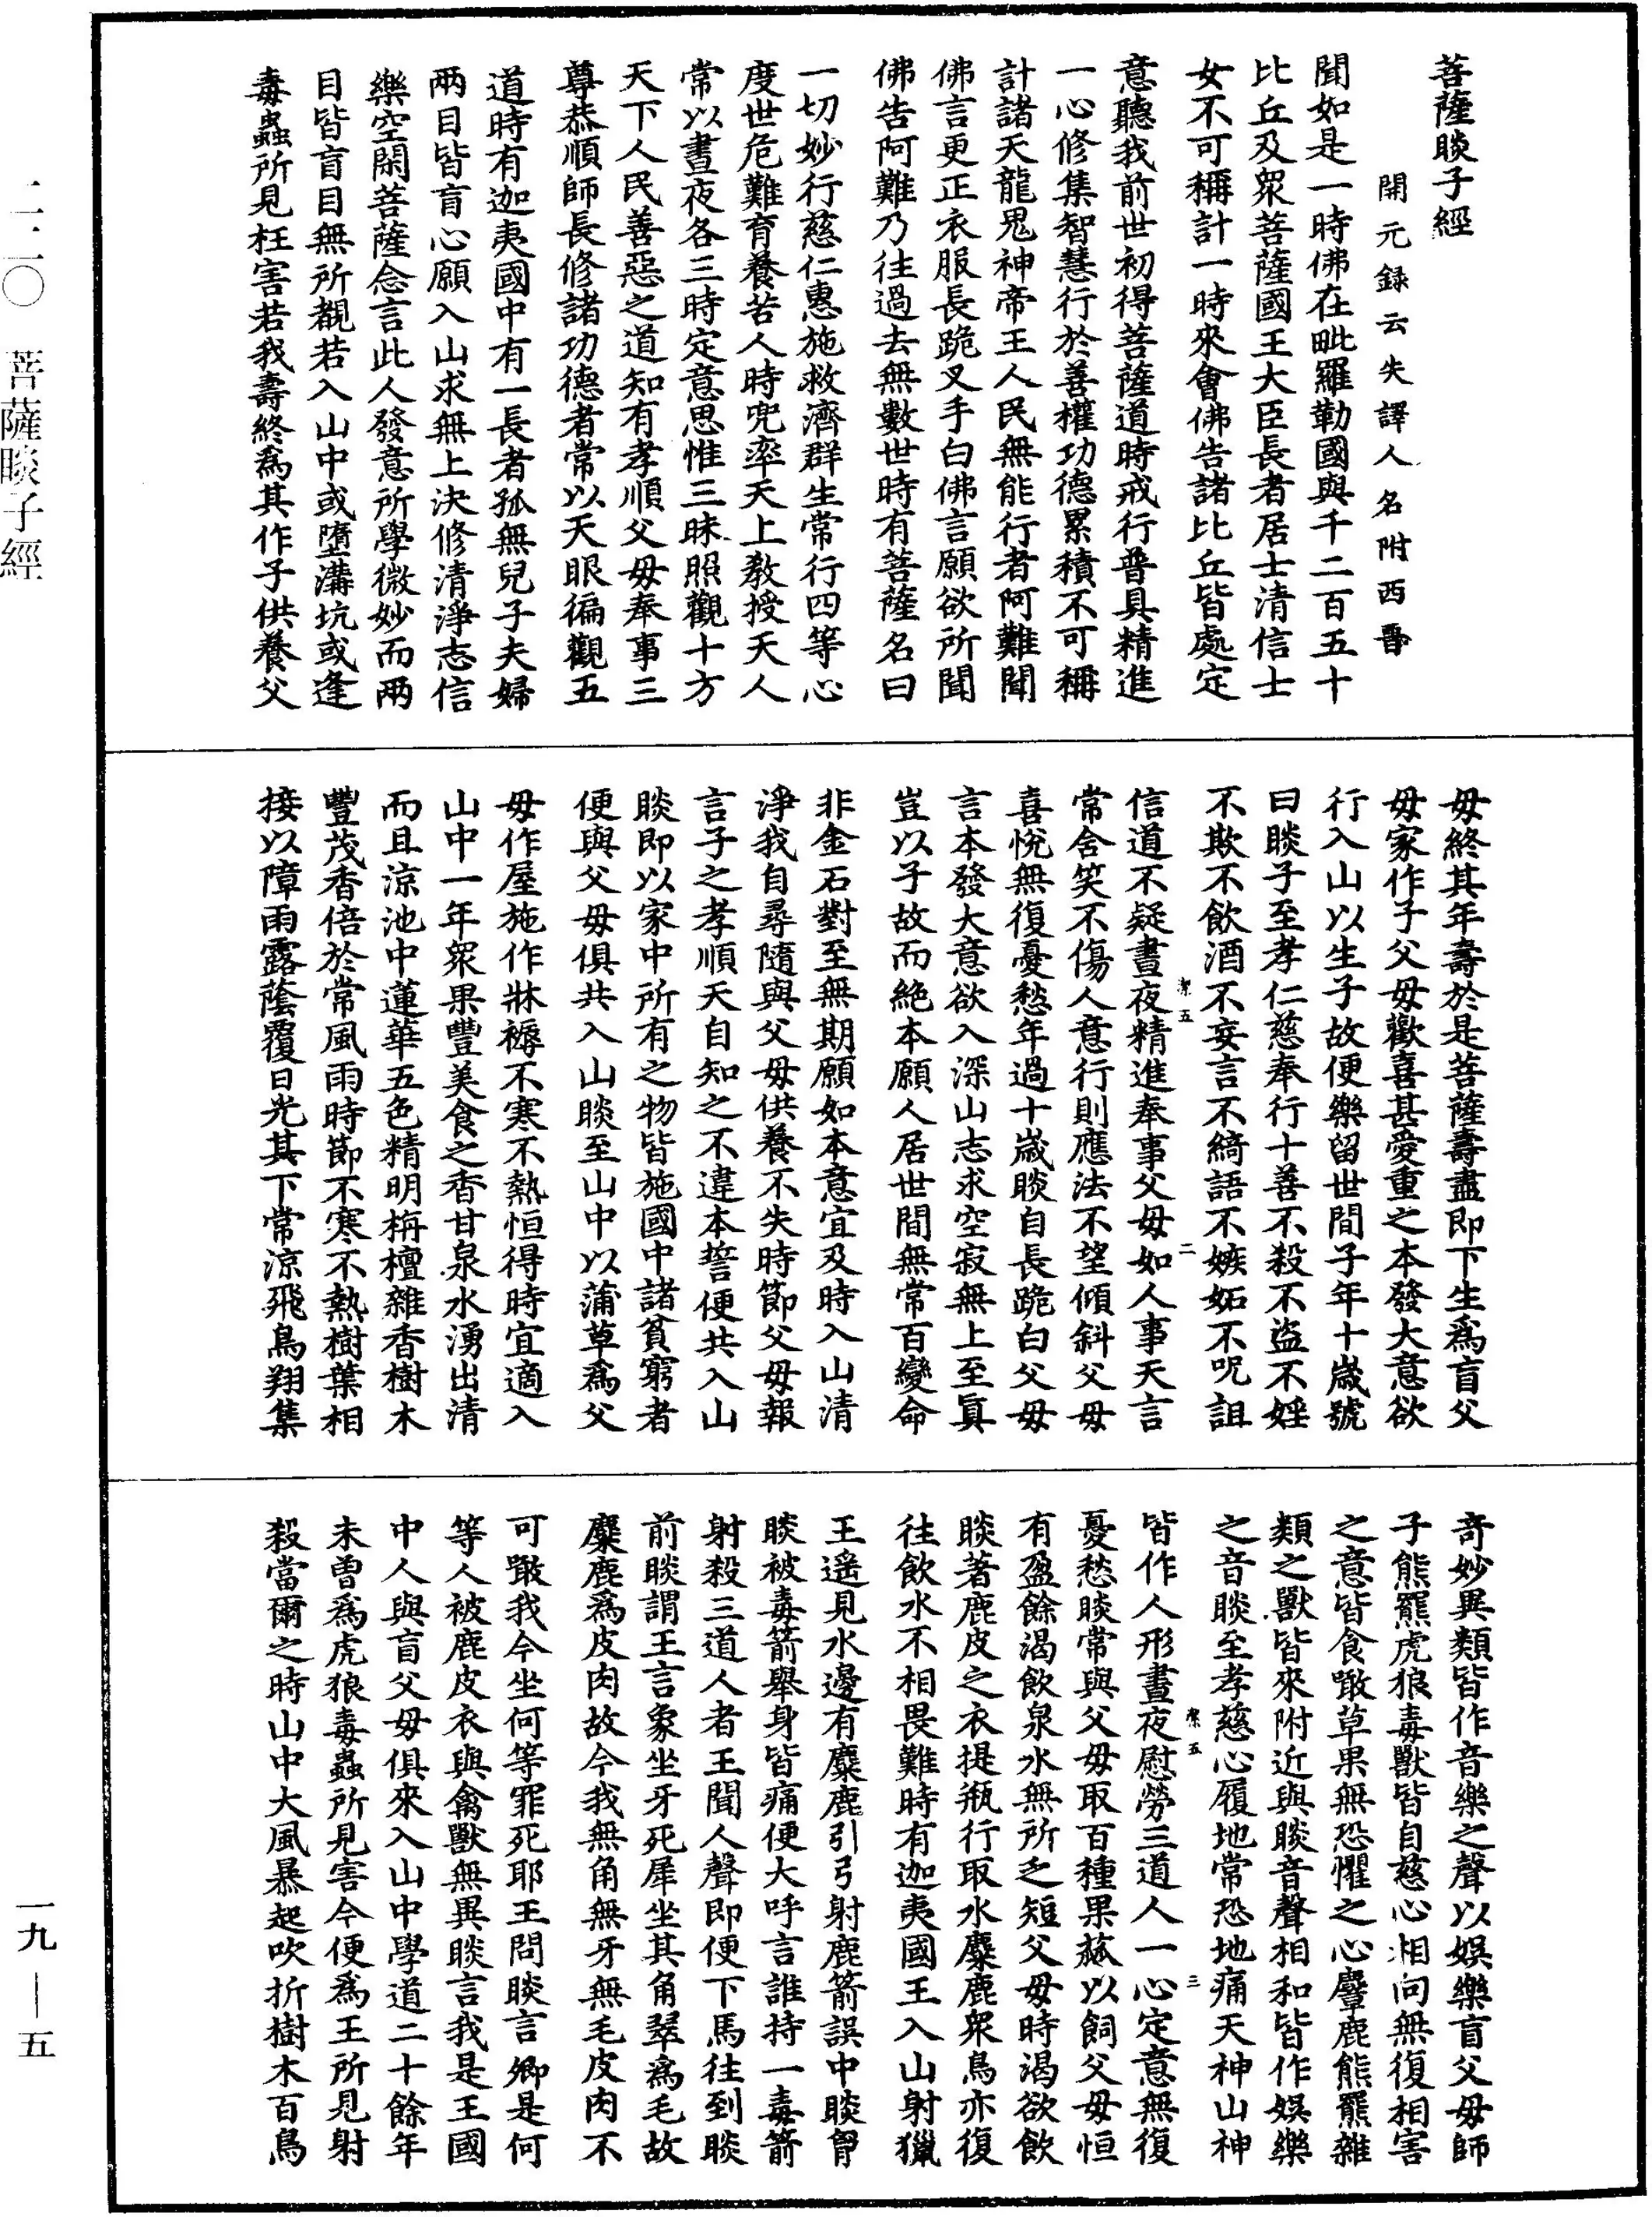 菩薩睒子經
開元録云失譯人名附西晉
聞如是一時佛在毗羅勒國與千二百五十
比丘及衆菩薩國王大臣長者居士清信士
女不可稱計一時來會佛告諸比丘皆處定
意聽我前世初得菩薩道時戒行普具精進
一心修集智慧行於善權功德累積不可稱
計諸天龍鬼神帝王人民無能行者阿難聞
佛言更正衣服長跪叉手白佛言願欲所聞
佛告阿難乃往過去無數世時有菩薩名曰
一切妙行慈仁惠施救濟群生常行四等心
度世危難育養苦人時兜率天上教授天人
常以晝夜各三時定意思惟三昧照觀十方
天下人民善惡之道知有孝順父毋奉事三
尊恭順師長修諸功德者常以天眼徧觀五
道時有迦夷國中有一長者孤無兒子夫婦
兩目皆盲心願入山求無上決修清淨志信
樂空閑菩薩念言此人發意所學微妙而兩
目皆盲目無所覩若入山中或墮溝坑或逢
毒蟲所見枉害若我壽終爲其作子供養父
毋終其年壽於是菩薩壽盡即下生爲盲父
毋家作子父毋歡喜甚愛重之本發大意欲
行入山以生子故便樂留世間子年十歲號
曰睒子至孝仁慈奉行十善不殺不盜不婬
不欺不飲酒不妄言不綺語不嫉妬不呪詛
信道不疑晝夜精進奉事父毋如人事天言
常含笑不傷人意行則應法不望傾斜父毋
喜悅無復憂愁年過十歲睒自長跪白父毋
言本發大意欲入深山志求空寂無上至眞
豈以子故而絶本願人居世間無常百變命
非金石對至無期願如本意宜及時入山清
淨我自尋隨與父毋供養不失時節父毋報
言子之孝順天自知之不違本誓便共入山
睒即以家中所有之物皆施國中諸貧窮者
便與父毋俱共入山睒至山中以蒲草爲父
毋作屋施作牀褥不寒不熱恒得時宜適入
山中一年衆果豐美食之香甘泉水湧出清
而且涼池中蓮華五色精明栴檀雜香樹木
豐茂香倍於常風雨時節不寒不熱樹葉相
接以障雨露蔭覆日光其下常涼飛鳥翔集
奇妙異類皆作音樂之聲以娛樂盲父毋師
子熊羆虎狼毒獸皆自慈心相向無復相害
之意皆食噉草果無恐懼之心麞鹿熊羆雜
類之獸皆來附近與睒音聲相和皆作娛樂
之音睒至孝慈心履地常恐地痛天神山神
皆作人形晝夜慰勞三道人一心定意無復
憂愁睒常與父毋取百種果蓏以飼父毋恒
有盈餘渴飲泉水無所乏短父毋時渴欲飲
睒著鹿皮之衣提瓶行取水麋鹿衆鳥亦復
往飲水不相畏難時有迦夷國王入山射獵
王遥見水邊有麋鹿引弓射鹿箭誤中睒胷
睒被毒箭舉身皆痛便大呼言誰持一毒箭
射殺三道人者王聞人聲即便下馬往到睒
前睒謂王言象坐牙死犀坐其角翠爲毛故
麋鹿爲皮肉故今我無角無牙無毛皮肉不
可噉我今坐何等罪死耶王問睒言卿是何
等人被鹿皮衣與禽獸無異睒言我是王國
中人與盲父毋俱來入山中學道二十餘年
未曾爲虎狼毒蟲所見害今便爲王所見射
殺當爾之時山中大風暴起吹折樹木百鳥
潔五
二
潔五
三
二二〇 菩薩睒子經
一九—五